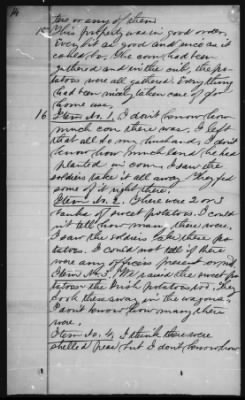 two or any of them
15 This property was in good order.
Every bit as good and nice as it
called for. The corn had been
gathered and in the crib, the po-
tatoes were all gathered. Everything
had been nicely taken care of for
home use.
16 Item No. 1, I don't know how
much corn there was. I left
that all to my husband, I don't
know how much land he had
planted in corn. I saw the
soldiers take it all away. They fed
some of it right there.
Item No. 2. There were 2 or 3
banks of sweet potatoes. I could
n't tell how many there were.
I saw the soldiers take these po-
tatoes. I could not tell if there
were any officers present or not.
Item No. 3. We raised the sweet po-
tatoes the Irish potatoes, too. They
took these away in the wagons.
I don't know how many there
were.
Item No. 4, I think there were
shelled peas but I don't know how